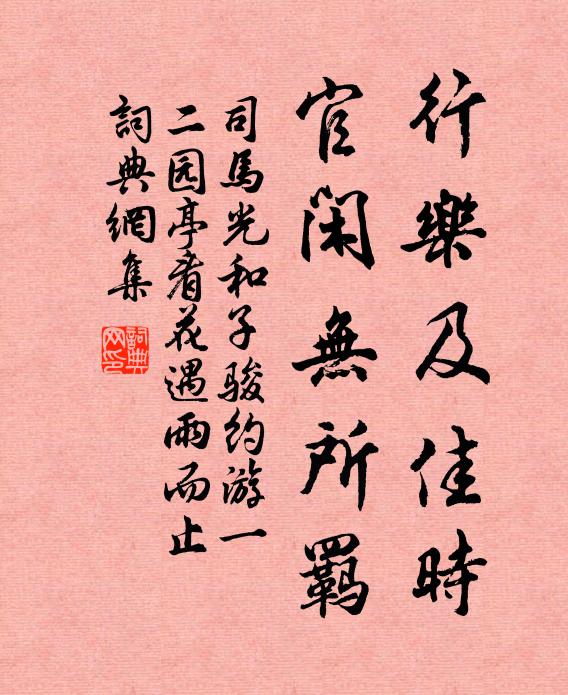 行樂及佳時
官閑無所羈
司馬光和子骏約游一
二园亭看花遇雨而止
詞典網集
詞典
网印